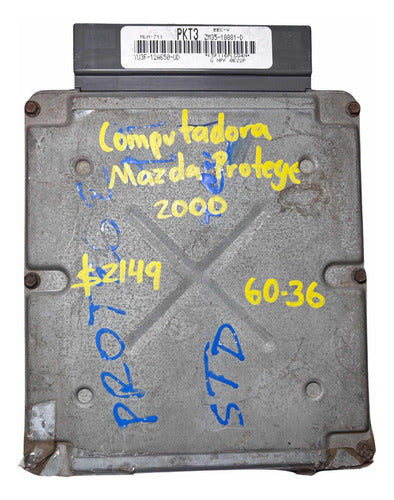 MLA-711 PKT3 EEC-V
ZM35-18881-D
YU3F-12A650-UD
Computadora
Mazda Protege
2000
$2149
60-36
PROT
STD